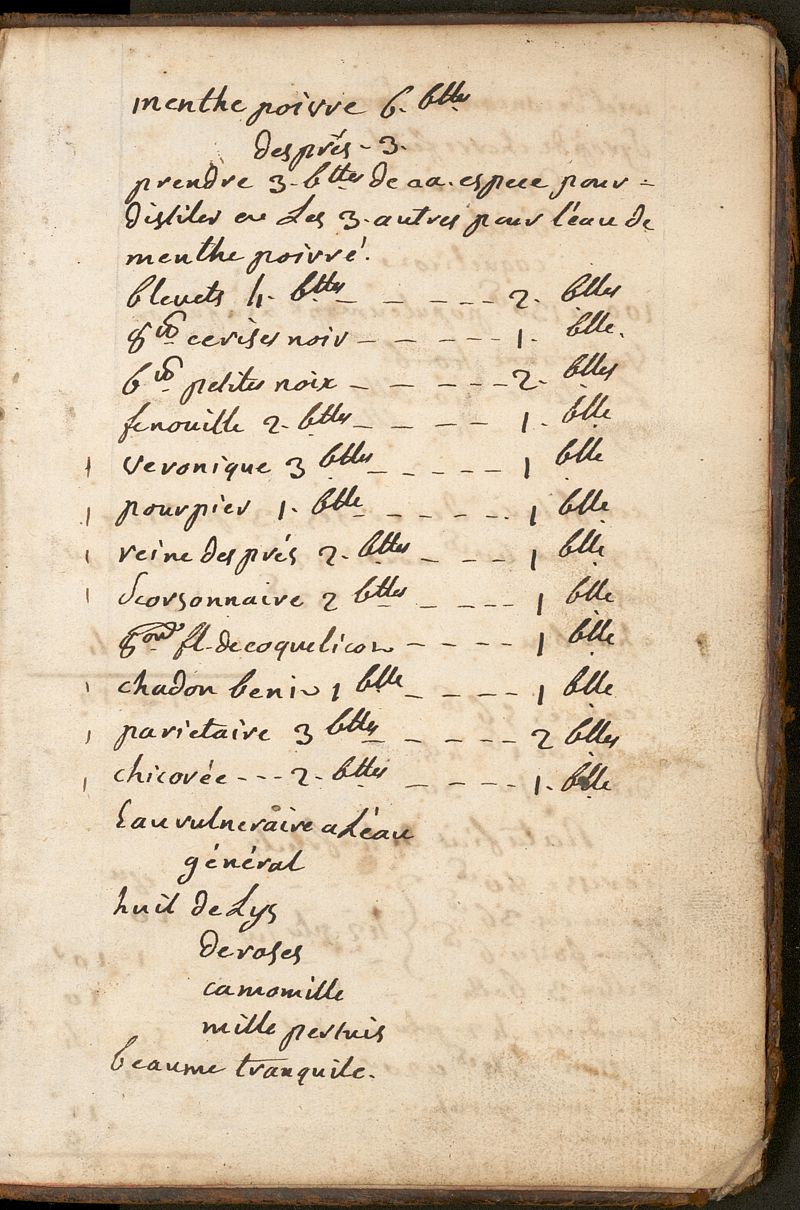 menthe poivre 6. bttes
després - 3.
prendre 3. bttes de aa. espece pour =
distiler et Les 3. autres pour l'eau de
menthe poivré.
bleuets 4. bttes _ _ _ _ _ 2. blles
8 cerises noir _ _ _ _ _ 1. blle.
6 petites noix _ _ _ _ _ 2. blles
fenouille 2. bttes _ _ _ _ 1. blle
veronique 3 bttes _ _ _ _ _ 1 blle
pourpier 1. btte _ _ _ _ _ 1 blle
reine després 2. bttes _ _ _ _ 1 blle
Scorsonnaire 2 bttes _ _ _ _ 1 blle
8 fl. de coquelicot _ _ _ _ 1 blle
chadon benit 1 btte _ _ _ _ 1 blle
parietaire 3 bttes _ _ _ _ _ 2 blles
chicorée - - - 2. bttes _ _ _ _ 1. blle
Eau vulneraire a L'eau
général
huil de Lys
de roses
camomille
mille pertuis
beaume tranquile.